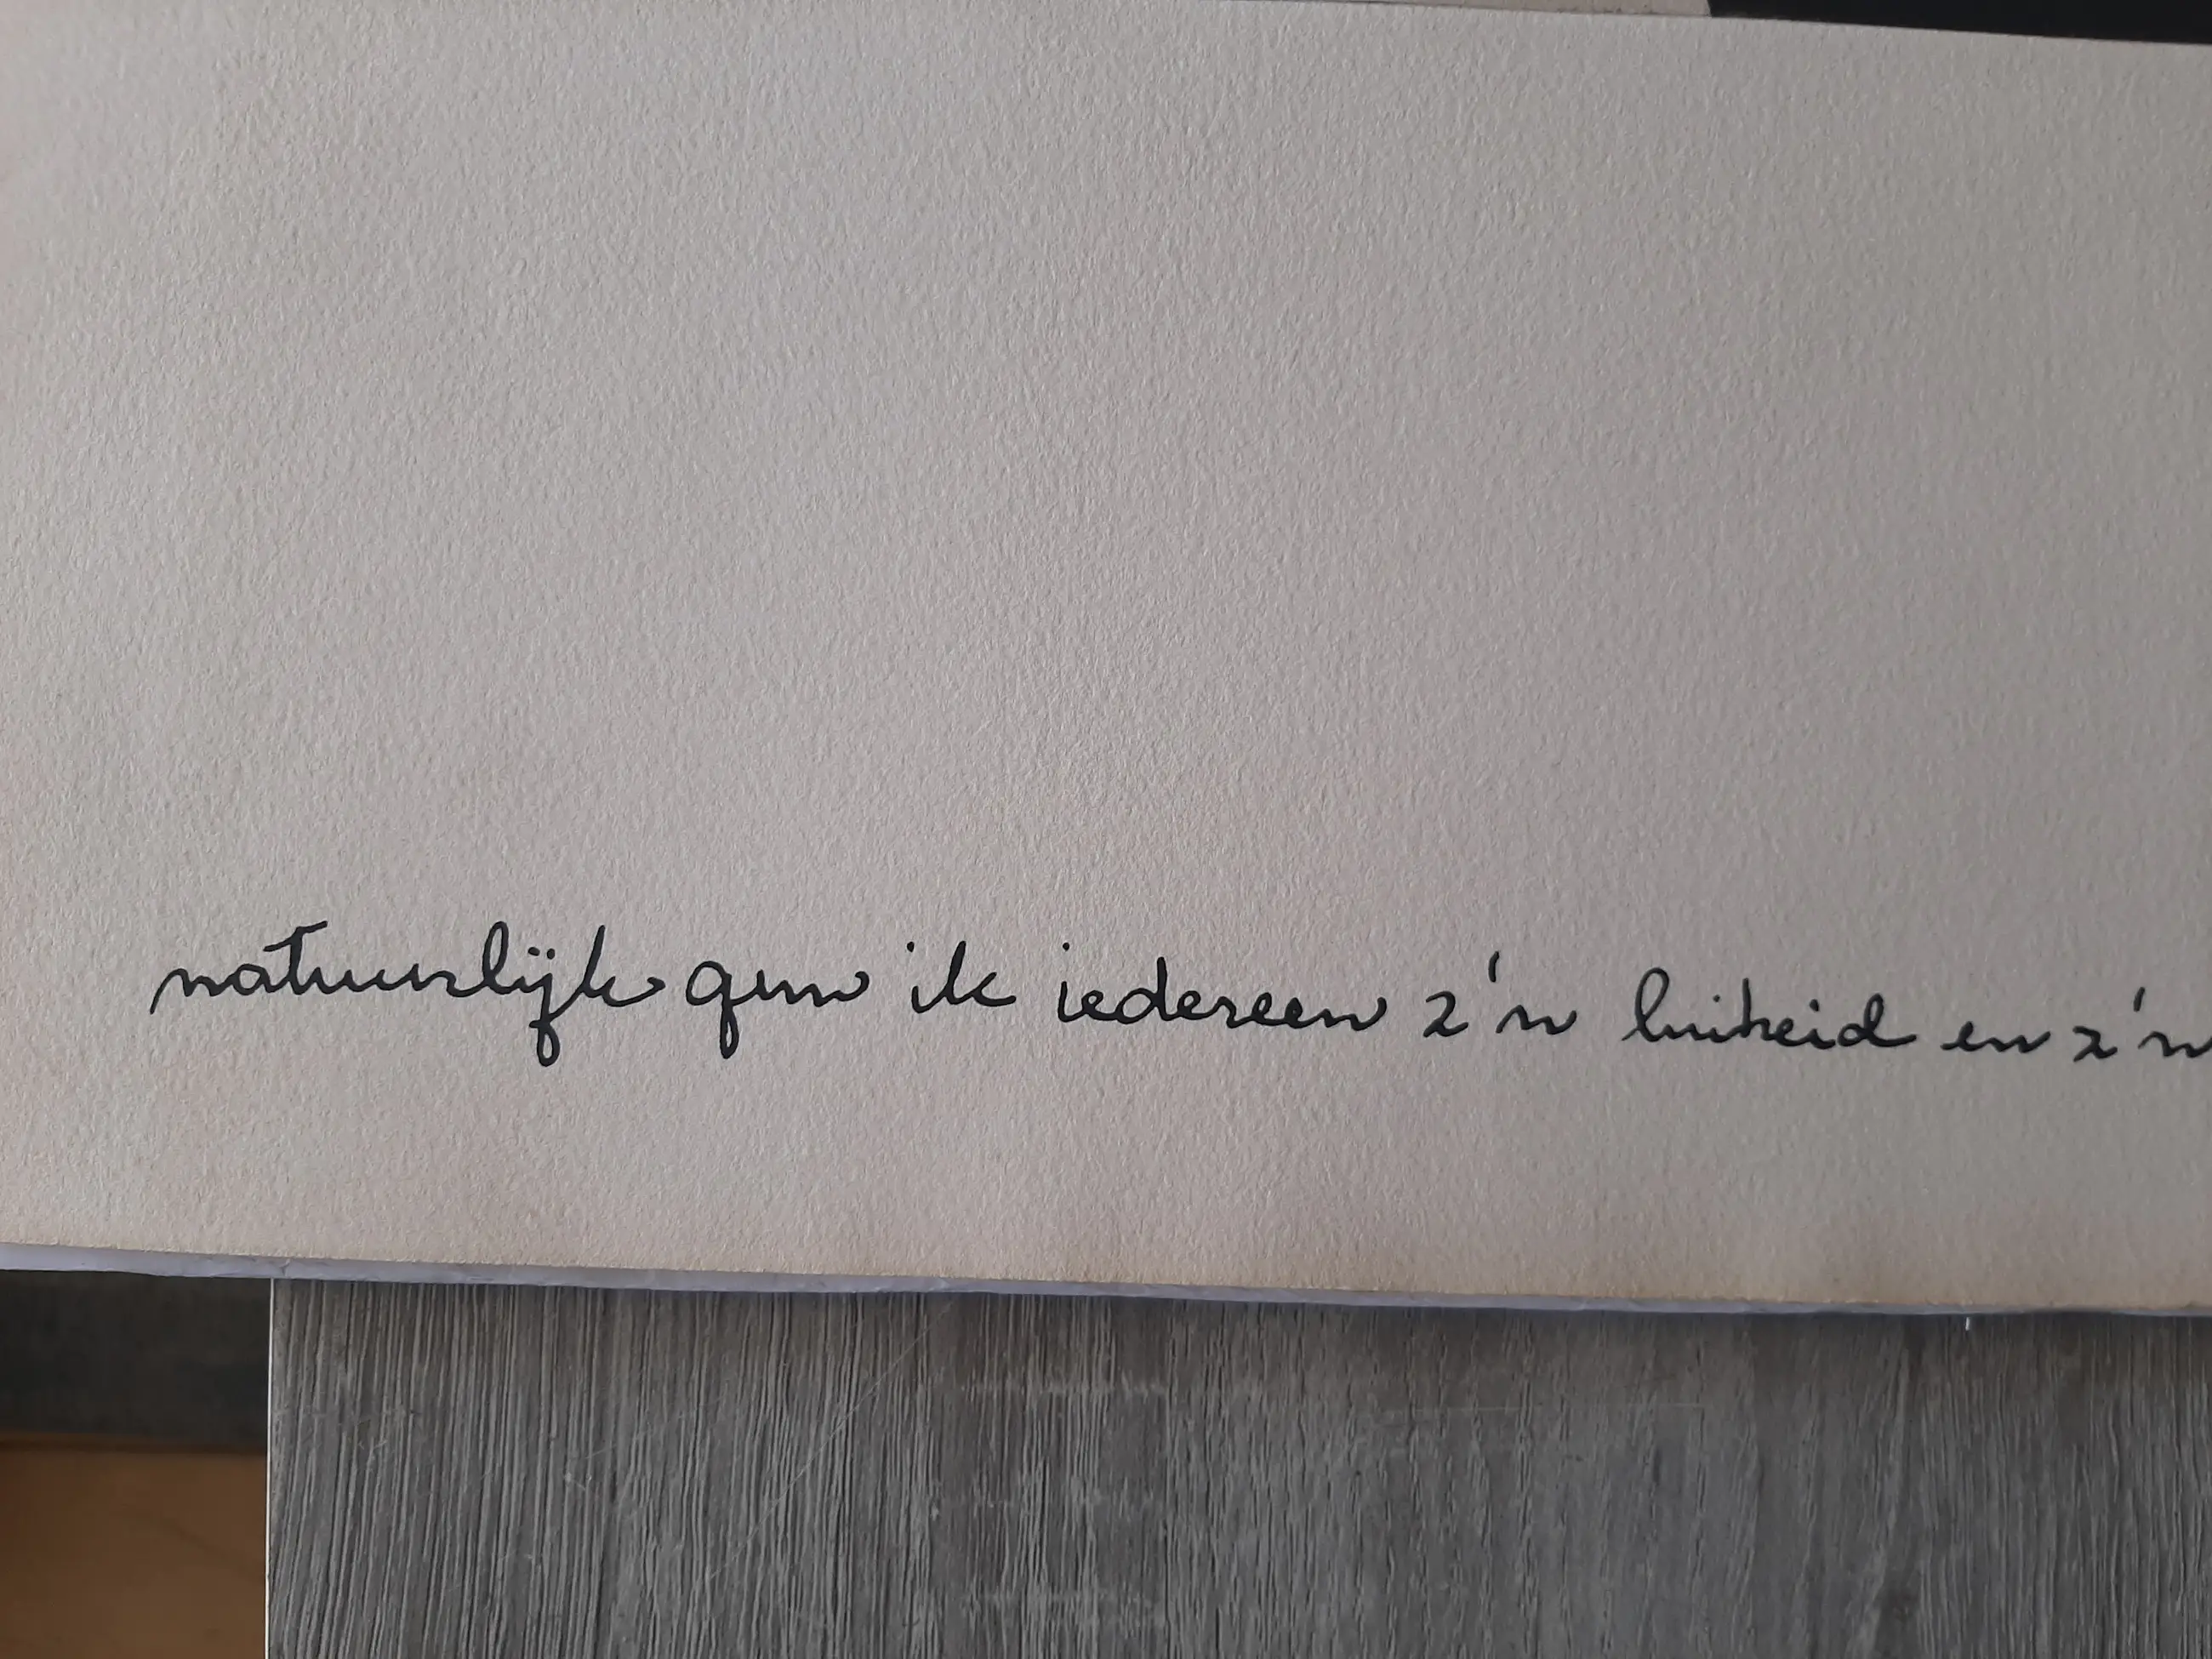 natuurlijk gun ik iedereen z'n luiheid en z'n